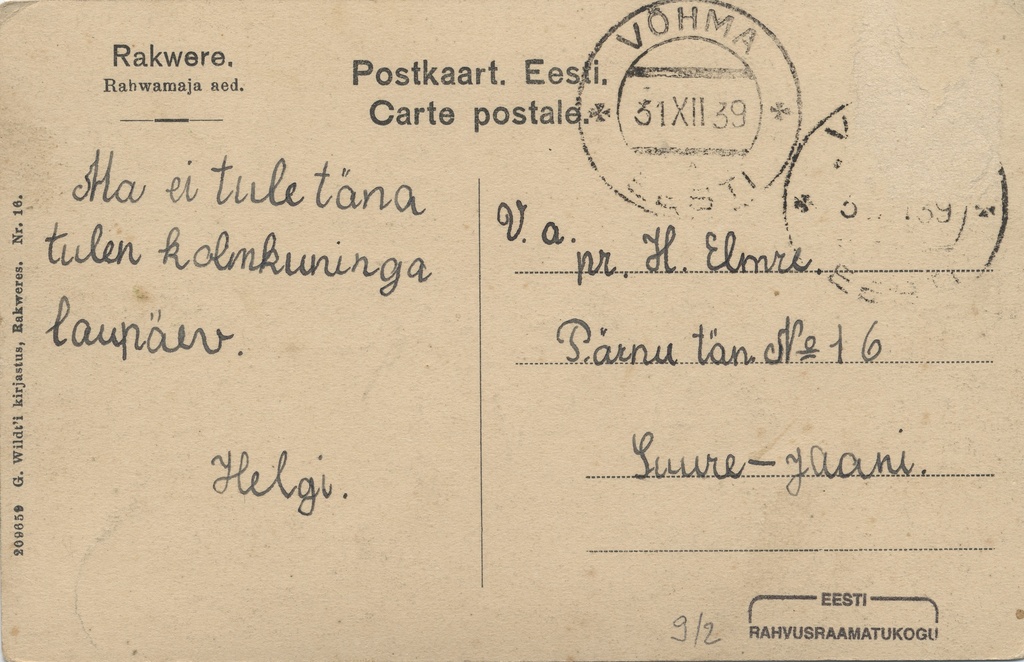 Rakwere.
Rahwamaja aed.
Postkaart. Eesti.
Carte postale.
VÕHMA
31 XII 39
EESTI
V
39
EESTI
Ma ei tule täna
tulen kolmkuninga
laupäev.
Helgi.
V. a.
pr. H. Elmre.
Pärnu tän. № 16
Suure-Jaani.
209659 G. Wildt'i kirjastus, Rakweres. Nr. 16.
9/2
EESTI
RAHVUSRAAMATUKOGU